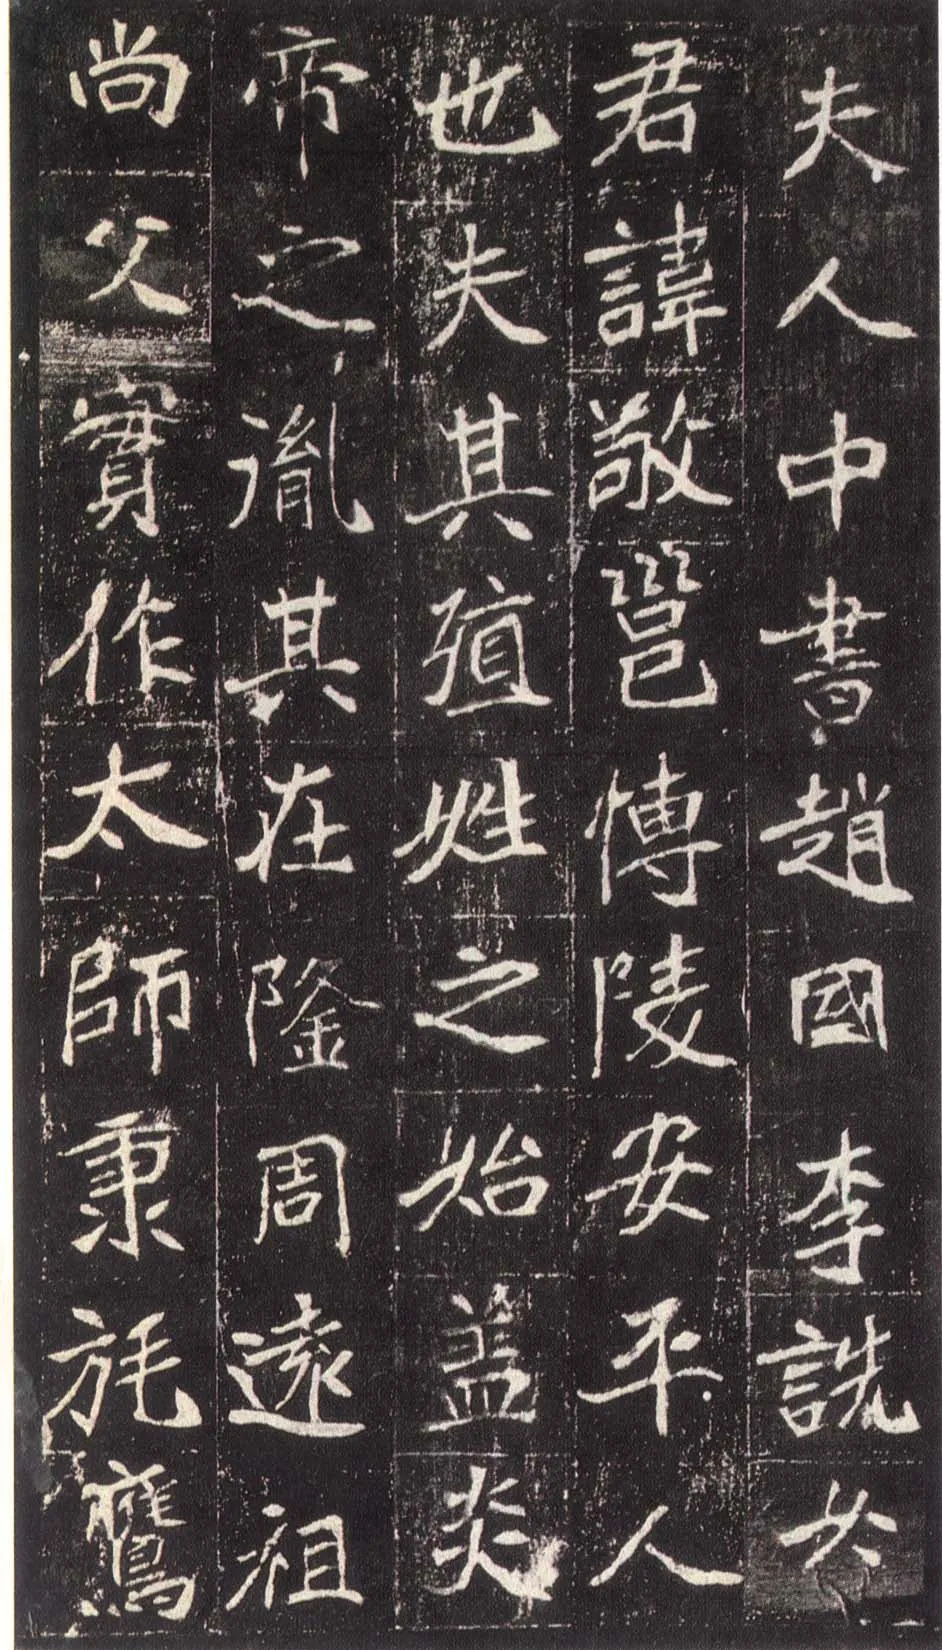 夫人中書趙國李詵公
君諱敬邕博陵安平人
也夫其殖姓之始蓋炎
帝之胤其在隆周遠祖
尚父實作太師秉旄鷹